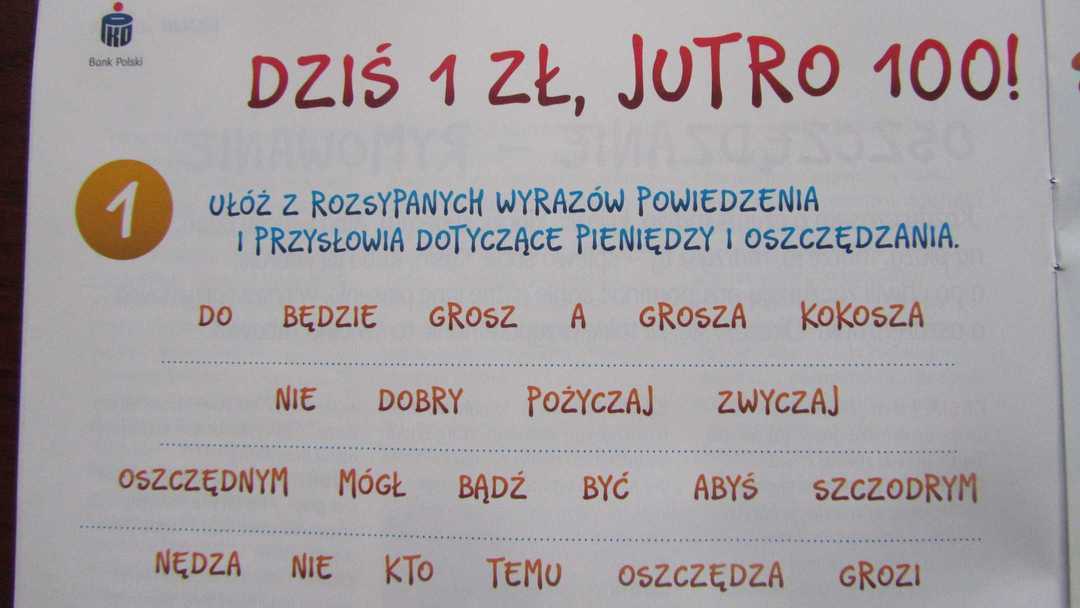 PKO
Bank Polski
DZIŚ 1 ZŁ, JUTRO 100!
1
UŁÓŻ Z ROZSYPANYCH WYRAZÓW POWIEDZENIA
I PRZYSŁOWIA DOTYCZĄCE PIENIĘDZY I OSZCZĘDZANIA.
DO BĘDZIE GROSZ A GROSZA KOKOSZA
NIE DOBRY POŻYCZAJ ZWYCZAJ
OSZCZĘDNYM MÓGŁ BĄDŹ BYĆ ABYŚ SZCZODRYM
NĘDZA NIE KTO TEMU OSZCZĘDZA GROZI